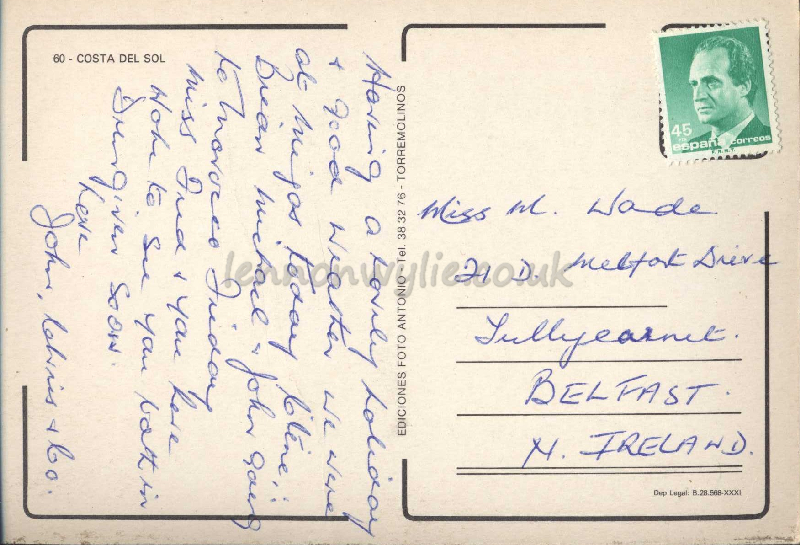 60 - COSTA DEL SOL
Having a lovely holiday
& good weather we were
at Mijas today
Brian Michael & John going
to Morocco Friday
Miss Jud & you here
Hope to see you both in
Dungiven soon.
Love
John, & Co.
EDICIONES FOTO ANTONIO - Tel. 38 32 76 - TORREMOLINOS
45
PTA
españa correos
Miss M. Wade
21 D. Melfort Drive
Tullycarnet.
BELFAST.
N. IRELAND.
Dep Legal: B.28.568-XXXI
lennonwylie.co.uk